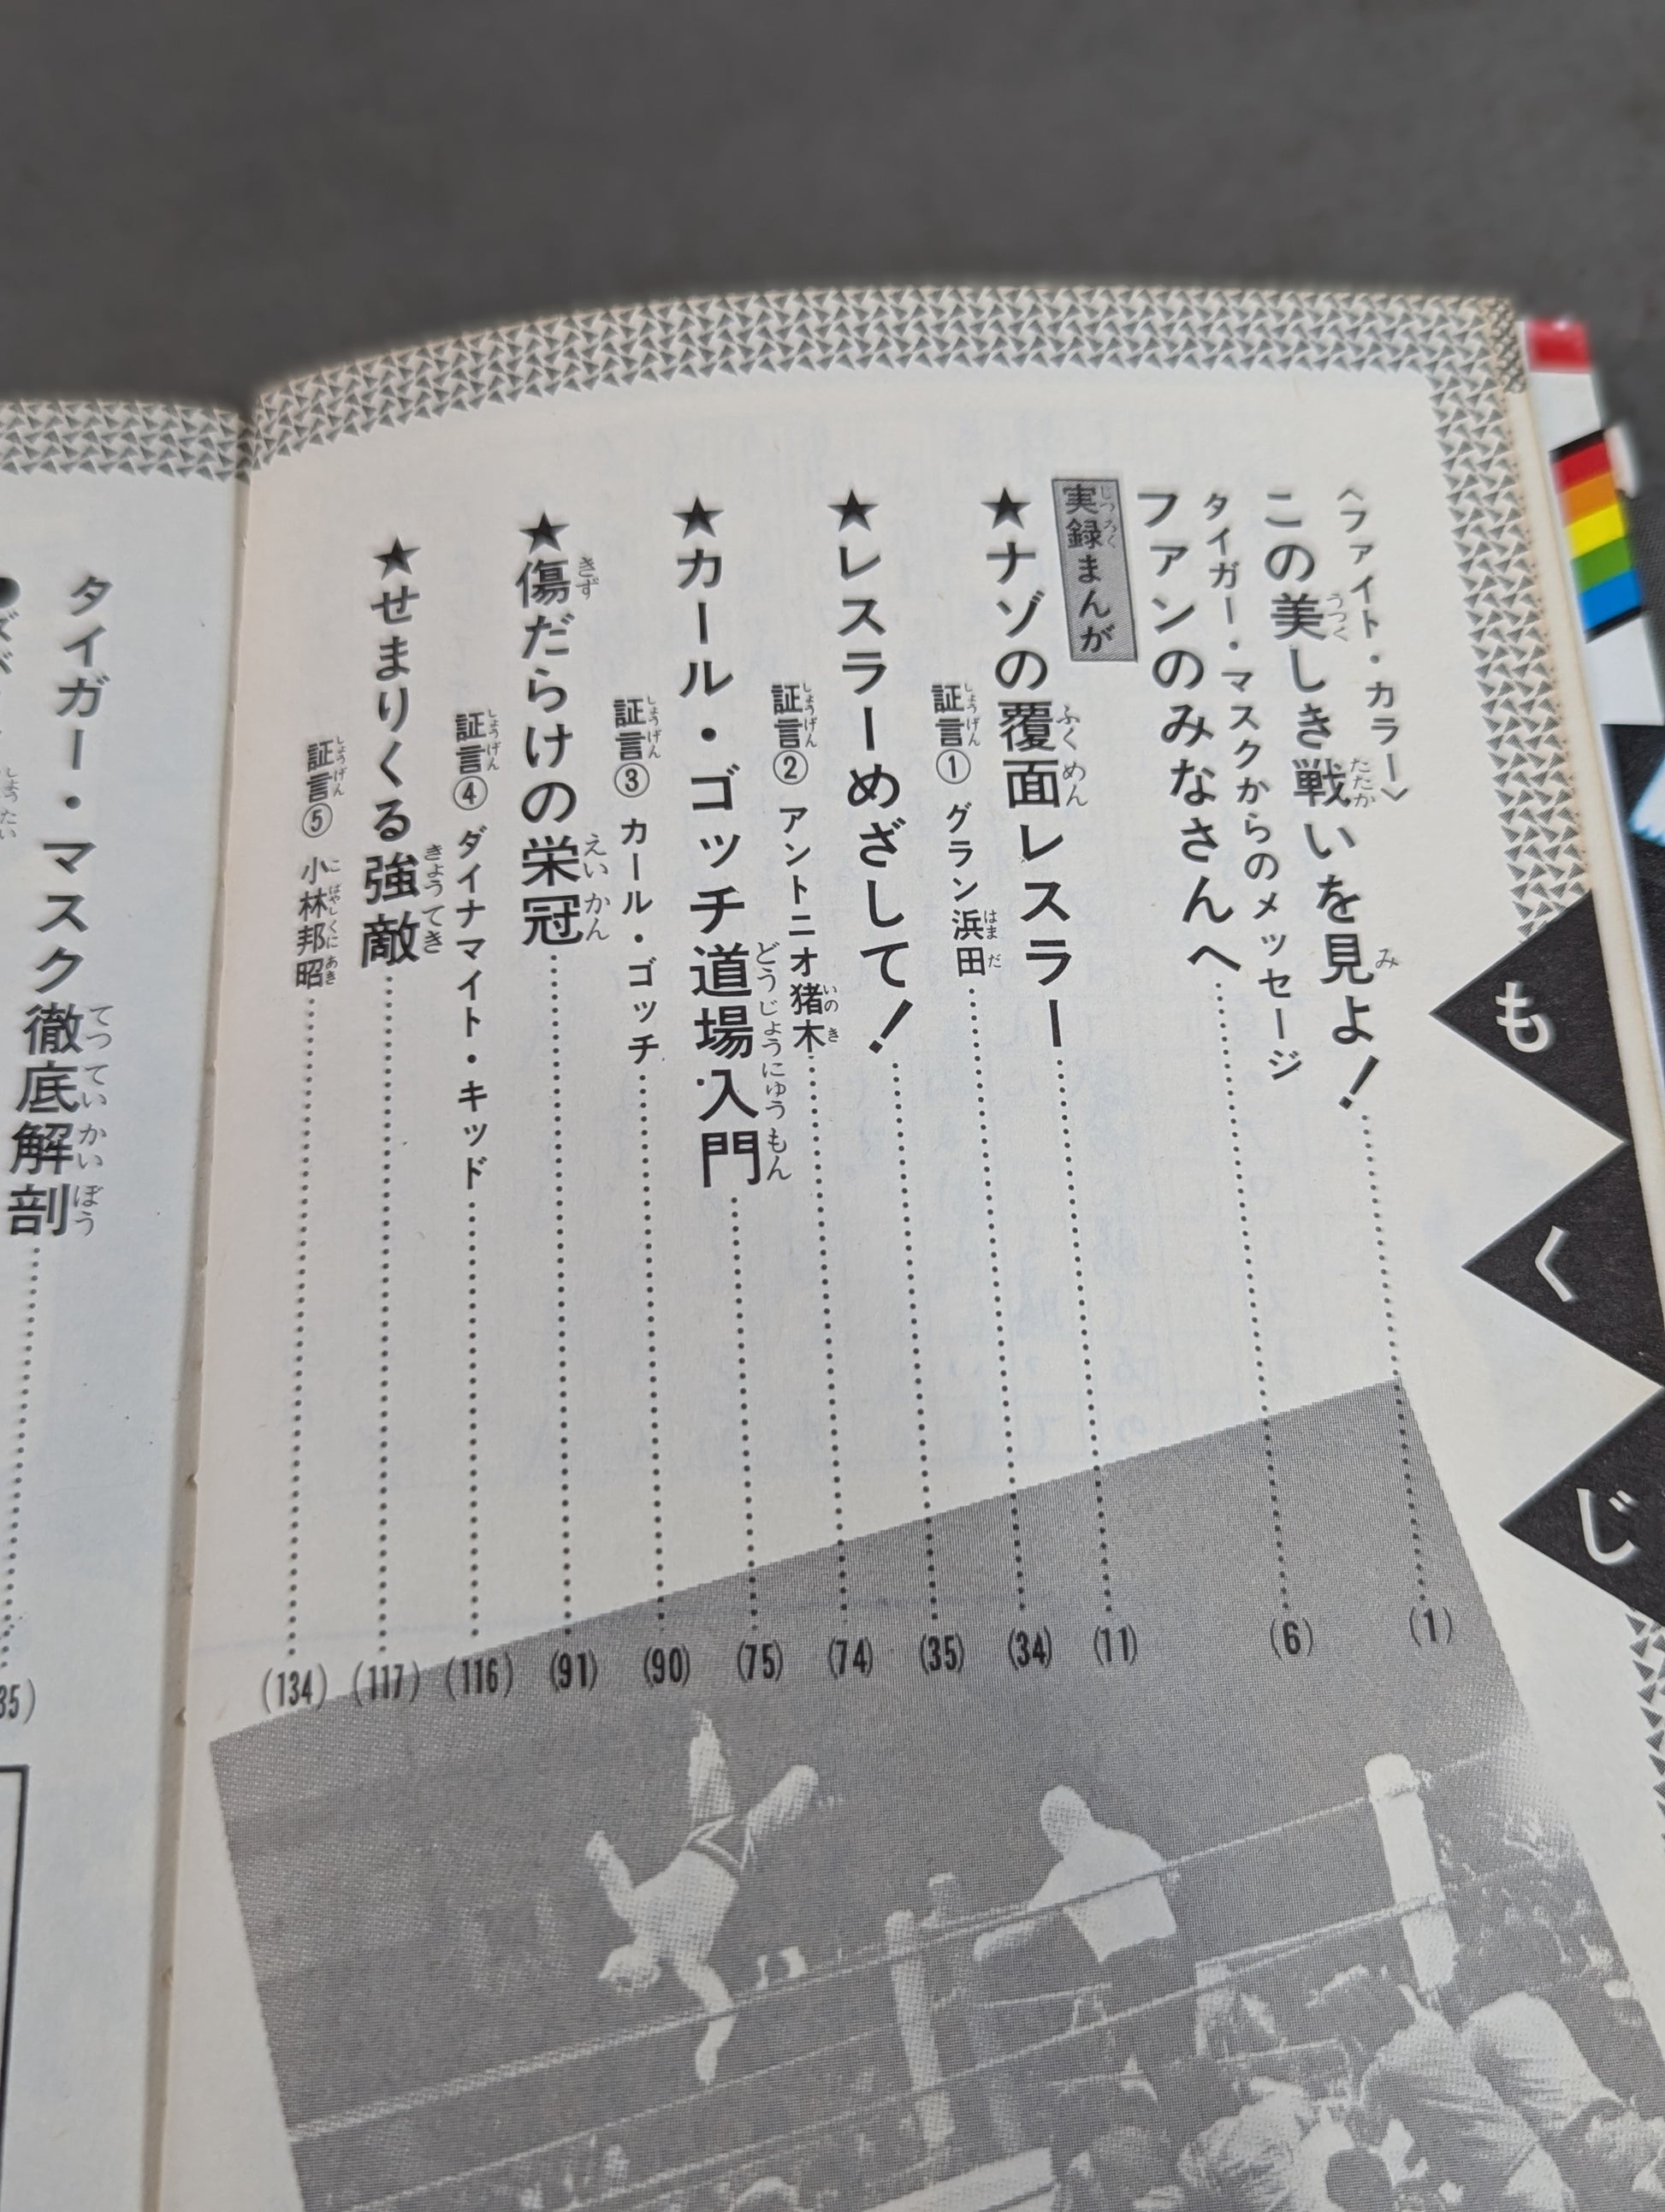 もくじ
〈ファイト・カラー〉
この美しき戦いを見よ！……(1)
タイガー・マスクからのメッセージ
ファンのみなさんへ……(6)
実録まんが
★ナゾの覆面レスラー……(11)
証言① グラン浜田……(34)
★レスラーめざして！……(35)
証言② アントニオ猪木……(74)
★カール・ゴッチ道場入門……(75)
証言③ カール・ゴッチ……(90)
★傷だらけの栄冠……(91)
証言④ ダイナマイト・キッド……(116)
★せまりくる強敵……(117)
証言⑤ 小林邦昭……(134)
タイガー・マスク徹底解剖……